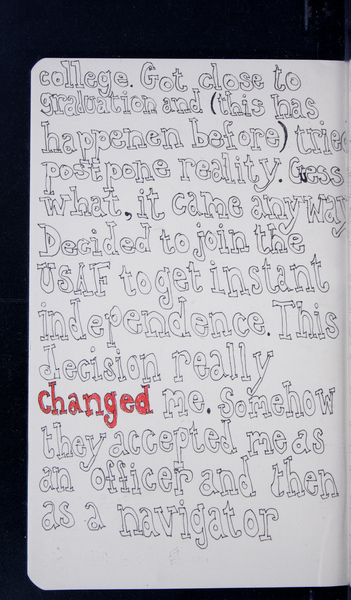 college. Got close to
graduation and (this has
happenen before) tried
postpone reality. Guess
what, it came anyway
Decided to join the
USAF to get instant
independence. This
decision really
changed me. Somehow
they accepted me as
an officer and then
as a navigator